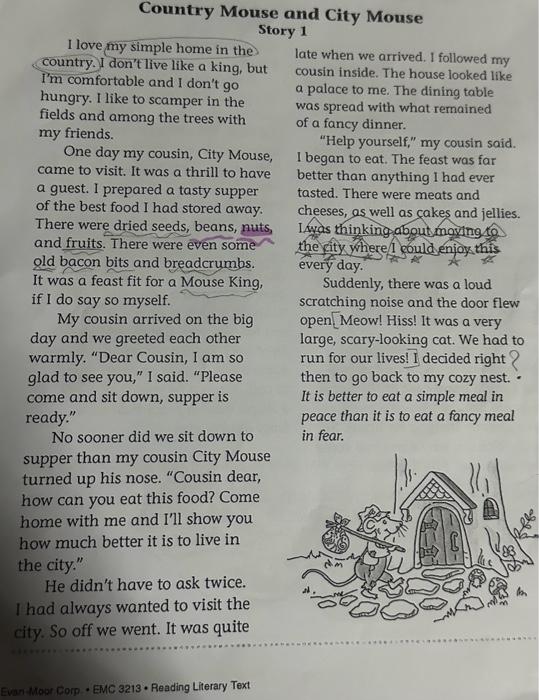 Country Mouse and City Mouse
Story 1
I love my simple home in the
country. I don't live like a king, but
I'm comfortable and I don't go
hungry. I like to scamper in the
fields and among the trees with
my friends.
One day my cousin, City Mouse,
came to visit. It was a thrill to have
a guest. I prepared a tasty supper
of the best food I had stored away.
There were dried seeds, beans, nuts,
and fruits. There were even some
old bacon bits and breadcrumbs.
It was a feast fit for a Mouse King,
if I do say so myself.
My cousin arrived on the big
day and we greeted each other
warmly. "Dear Cousin, I am so
glad to see you," I said. "Please
come and sit down, supper is
ready."
No sooner did we sit down to
supper than my cousin City Mouse
turned up his nose. "Cousin dear,
how can you eat this food? Come
home with me and I'll show you
how much better it is to live in
the city."
He didn't have to ask twice.
I had always wanted to visit the
city. So off we went. It was quite
late when we arrived. I followed my
cousin inside. The house looked like
a palace to me. The dining table
was spread with what remained
of a fancy dinner.
"Help yourself," my cousin said.
I began to eat. The feast was far
better than anything I had ever
tasted. There were meats and
cheeses, as well as cakes and jellies.
I was thinking about moving to
the city where I could enjoy this
every day.
Suddenly, there was a loud
scratching noise and the door flew
open. Meow! Hiss! It was a very
large, scary-looking cat. We had to
run for our lives! I decided right ?
then to go back to my cozy nest.
It is better to eat a simple meal in
peace than it is to eat a fancy meal
in fear.
Evan-Moor Corp. • EMC 3213 • Reading Literary Text